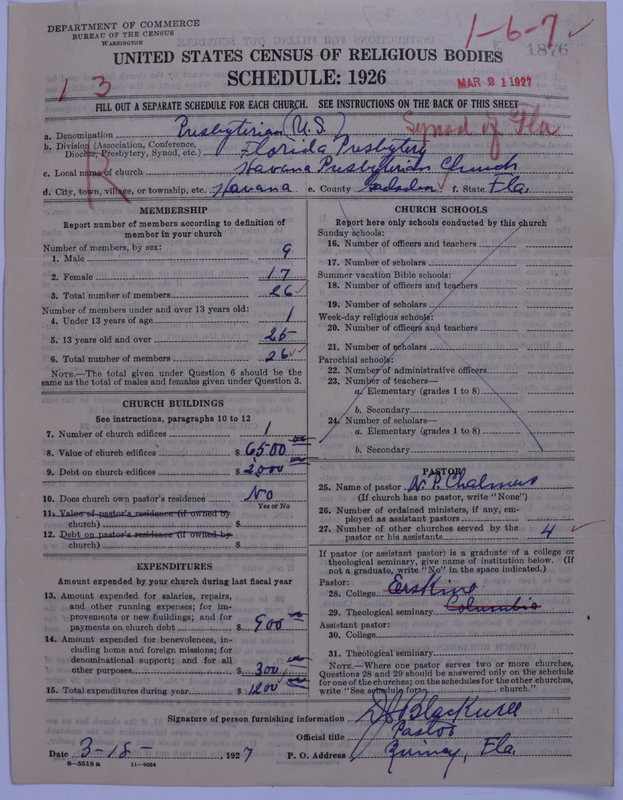 DEPARTMENT OF COMMERCE
BUREAU OF THE CENSUS
WASHINGTON
1-6-7
1876
UNITED STATES CENSUS OF RELIGIOUS BODIES
SCHEDULE: 1926
MAR 21 1927
1 3
FILL OUT A SEPARATE SCHEDULE FOR EACH CHURCH. SEE INSTRUCTIONS ON THE BACK OF THIS SHEET
a. Denomination Presbyterian (U.S.)
Synod of Fla
b. Division (Association, Conference, Diocese, Presbytery, Synod, etc.) Florida Presbytery
c. Local name of church Havana Presbyterian Church
d. City, town, village, or township, etc. Havana e. County Gadsden f. State Fla.
R
MEMBERSHIP
Report number of members according to definition of
member in your church
Number of members, by sex:
1. Male 9
2. Female 17
3. Total number of members 26
Number of members under and over 13 years old:
4. Under 13 years of age 1
5. 13 years old and over 25
6. Total number of members 26
NOTE.—The total given under Question 6 should be
same as the total of males and females given under Question 3.
CHURCH BUILDINGS
See instructions, paragraphs 10 to 12
7. Number of church edifices 1
8. Value of church edifices $ 6500
9. Debt on church edifices $ 2000
10. Does church own pastor's residence No
Yes or No
11. Value of pastor's residence (if owned by
church) $
12. Debt on pastor's residence (if owned by
church) $
EXPENDITURES
Amount expended by your church during last fiscal year
13. Amount expended for salaries, repairs,
and other running expenses; for im-
provements or new buildings; and for
payments on church debt $ 900
14. Amount expended for benevolences, in-
cluding home and foreign missions; for
denominational support; and for all
other purposes $ 300
15. Total expenditures during year $ 1200
CHURCH SCHOOLS
Report here only schools conducted by this church
Sunday schools:
16. Number of officers and teachers
17. Number of scholars
Summer vacation Bible schools:
18. Number of officers and teachers
19. Number of scholars
Week-day religious schools:
20. Number of officers and teachers
21. Number of scholars
Parochial schools:
22. Number of administrative officers
23. Number of teachers—
a. Elementary (grades 1 to 8)
b. Secondary
24. Number of scholars—
a. Elementary (grades 1 to 8)
b. Secondary
PASTOR
25. Name of pastor N. P. Chalmers
(If church has no pastor, write "None")
26. Number of ordained ministers, if any, em-
ployed as assistant pastors
27. Number of other churches served by the
pastor or his assistants 4
If pastor (or assistant pastor) is a graduate of a college or
theological seminary, give name of institution below. (If
not a graduate, write "No" in the space indicated.)
Pastor:
28. College Erskine
29. Theological seminary Columbia
Assistant pastor:
30. College
31. Theological seminary
NOTE.—Where one pastor serves two or more churches,
Questions 28 and 29 should be answered only on the schedule
for one of the churches; on the schedules for the other churches,
write "See schedule for church."
Signature of person furnishing information Blackwell
Official title Pastor
Date 3-18-, 1927 P. O. Address Quincy, Fla.
8-5518 a 11-9064